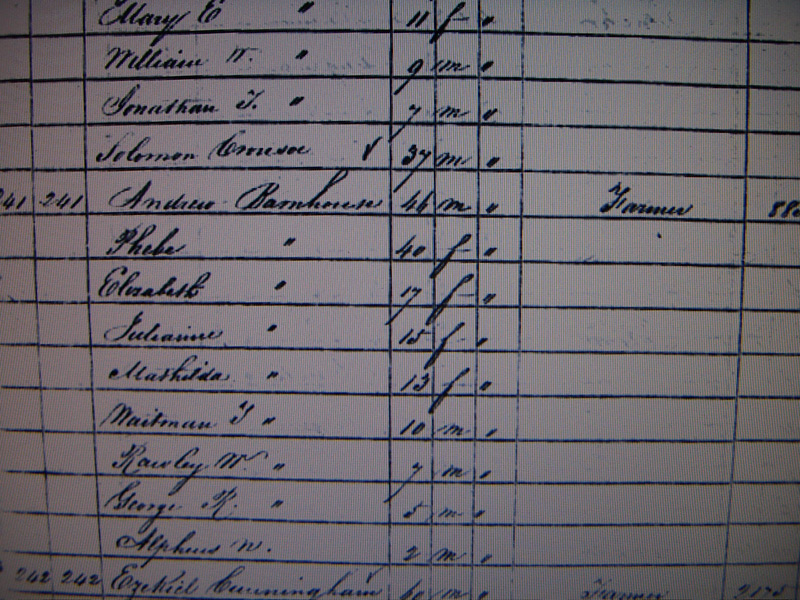 Mary E " 11 f "
William W. " 9 m "
Jonathan T. " 7 m "
Solomon Crouser √ 37 m "
241 241 Andrew Barnhouse 44 m " Farmer 88
Phebe " 40 f "
Elizabeth " 17 f "
Julianne " 15 f "
Mathilda " 13 f "
Waitman T " 10 m "
Rawley W. " 7 m "
George K. " 5 m "
Alpheus W. 2 m "
242 242 Ezekiel Cunningham 60 m " Farmer 2175